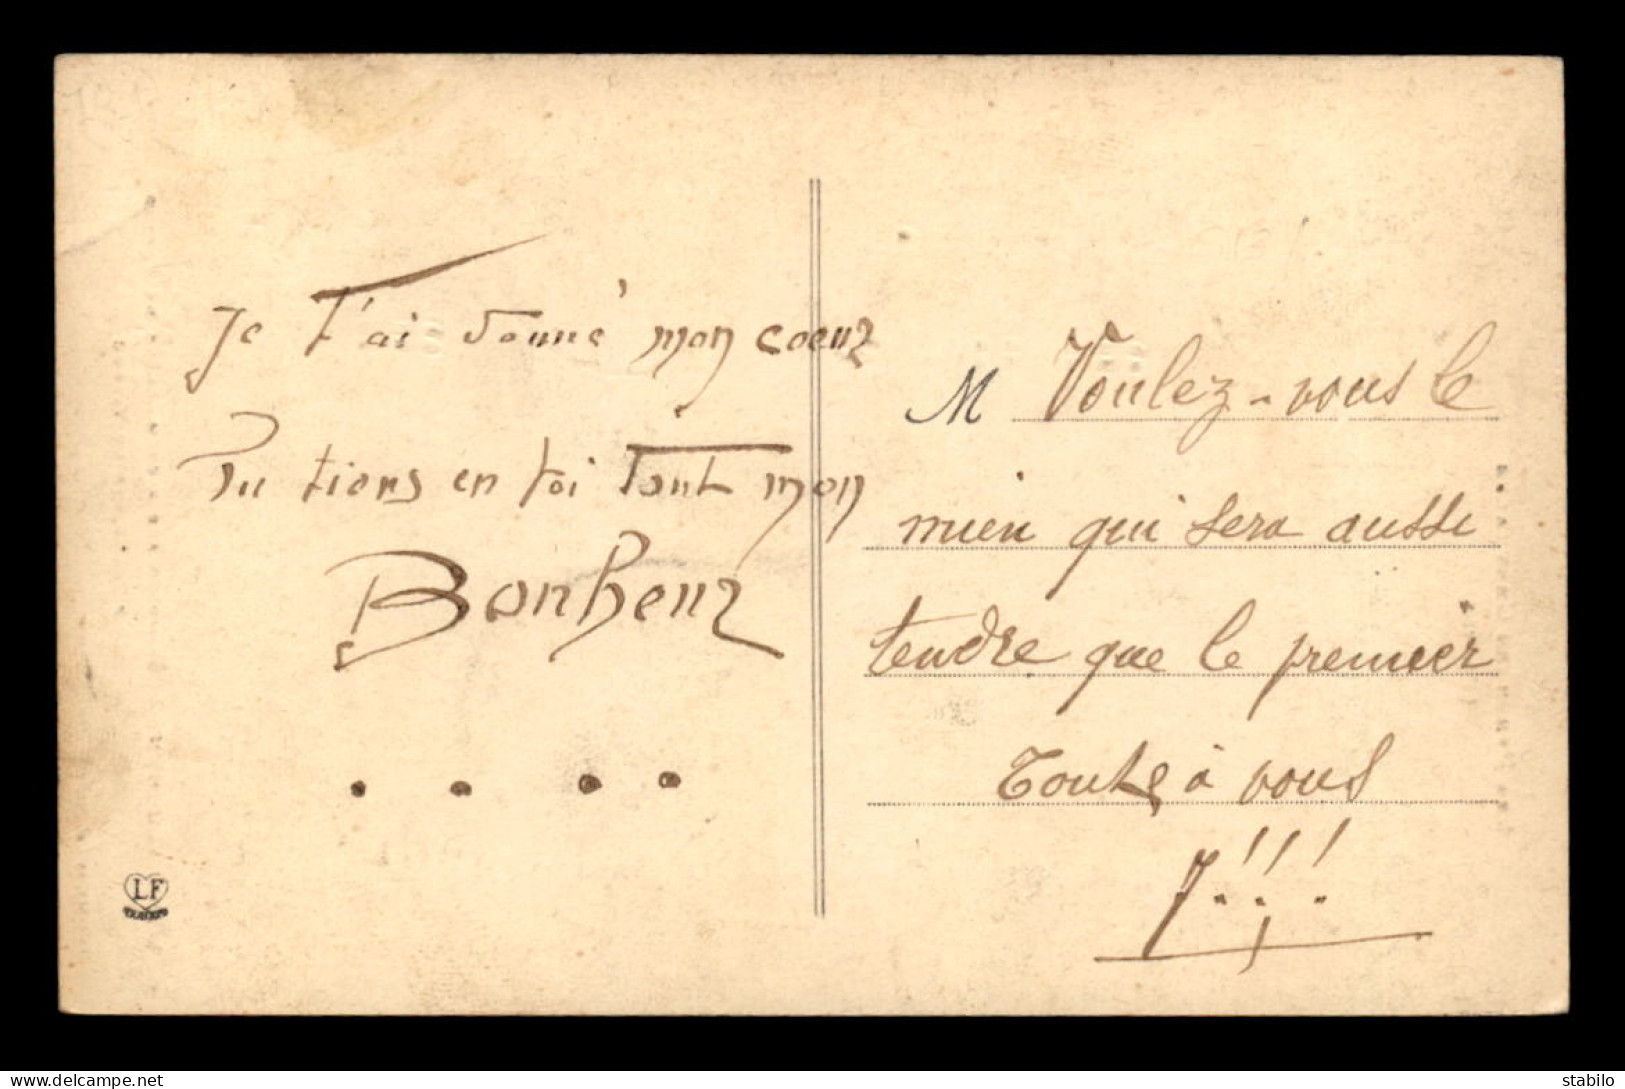 Je t'ai donné mon coeur
Tu tiens en toi tout mon
Bonheur
. . . .
LF
M Voulez-vous le
mien qui sera aussi
tendre que le premier
Toute à vous
J!!!
delcampe.net
stabilo